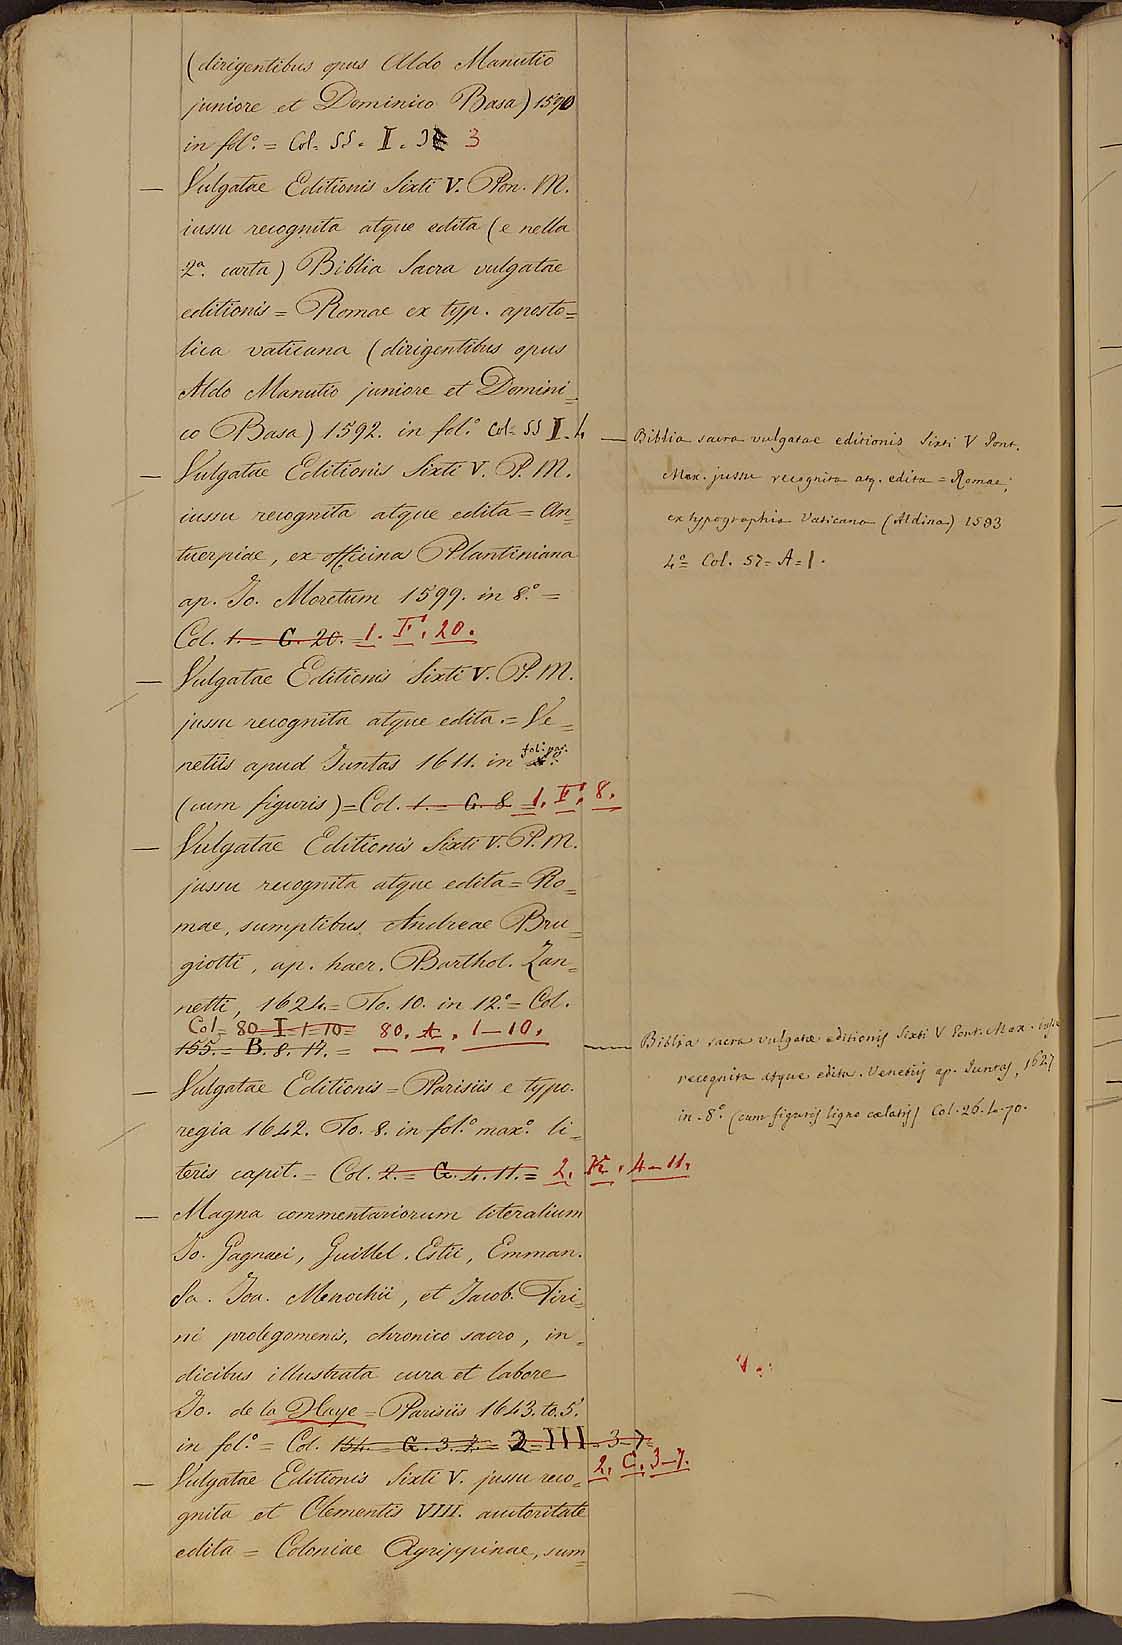 (dirigentibus opus Aldo Manutio
juniore et Dominico Basa) 1590
in fol.° = Col. SS. I. 3
— Vulgatae Editionis Sixti V. Pon. M.
iussu recognita atque edita (e nella
2ª. carta) Biblia Sacra vulgatae
editionis = Romae ex typ. aposto=
lica vaticana (dirigentibus opus
Aldo Manutio juniore et Domini=
co Basa) 1592. in fol.° Col. SS I. 4
— Vulgatae Editionis Sixti V. P. M.
iussu recognita atque edita = An=
tuerpiae, ex officina Plantiniana
ap. Jo. Moretum 1599. in 8.° =
Col. 1. = G. 20. = 1. F. 20.
— Vulgatae Editionis Sixti V. P. M.
jussu recognita atque edita. = Ve=
netiis apud Juntas 1611. in fol.° par.°
(cum figuris) = Col. 1. = G. 8 = 1. F. 8.
— Vulgatae Editionis Sixti V. P. M.
jussu recognita atque edita = Ro=
mae, sumptibus Andreae Bru=
giotti, ap. haer. Barthol. Zan=
netti, 1624. = To. 10. in 12.° = Col.
Col = 80 = I = 1 = 10 = 80. A. 1–10.
155. = B. 8. 17. =
— Vulgatae Editionis = Parisiis e typo.
regia 1642. To. 8. in fol.° max.° li=
teris capit. = Col. 2. = G. 4. 11. = 2. K. 4–11.
— Magna commentariorum literalium
Jo. Gagnaei, Guillel. Estii, Emman.
Sa. Joa. Menochii, et Jacob. Tiri=
ni prolegomenis, chronico sacro, in=
dicibus illustrata cura et labore
Jo. de la Haye = Parisiis 1643. to. 5.
in fol.° = Col. 154. = G. 3. 7. = 2 = III = 3–7 =
2. C. 3–7.
— Vulgatae Editionis Sixti V. jussu reco=
gnita et Clementis VIII. auctoritate
edita = Coloniae Agrippinae, sum=
— Biblia sacra vulgatae editionis Sixti V Pont.
Max. jussu recognita atq. edita = Romae;
ex typographia Vaticana (Aldina) 1593
4° = Col. 57 = A = 1.
— Biblia sacra vulgatae editionis Sixti V Pont. Max. jussu
recognita atque edita. Venetiis ap. Juntas, 1627
in-8°. (cum figuris ligno caelatis) Col. 26. L. 70.